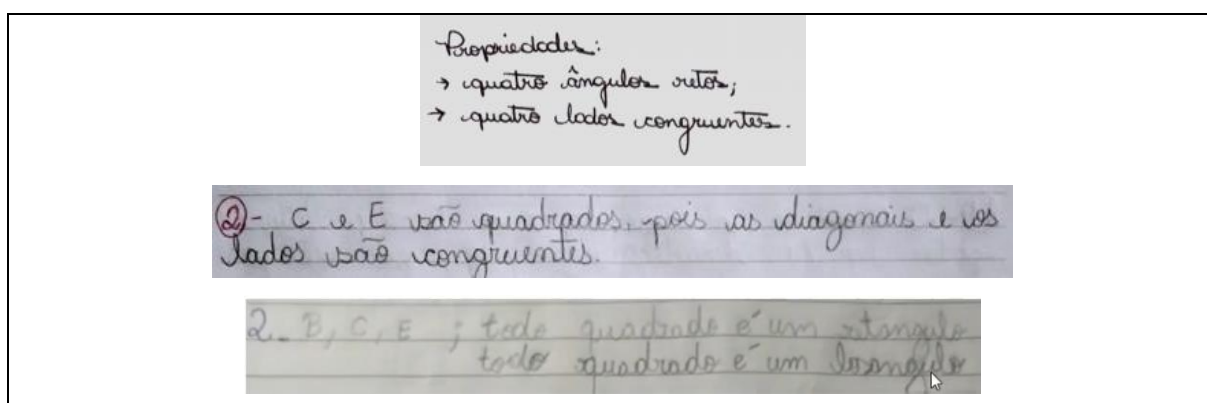 Propriedades:
→ quatro ângulos retos;
→ quatro lados congruentes.
2- C e E são quadrados, pois as diagonais e os
lados são congruentes.
2- B, C, E ; todo quadrado é um retangulo
todo quadrado é um losangulo